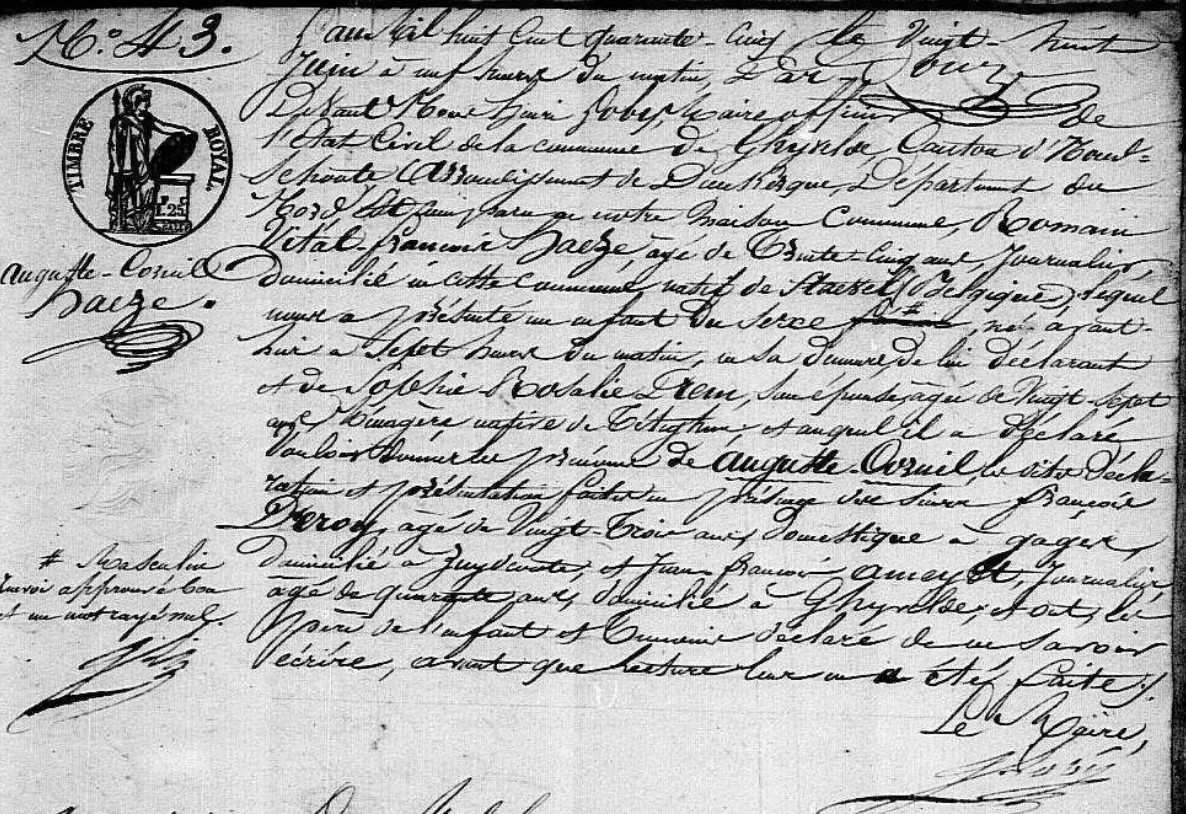 N.º 43.
L'an Mil huit Cent quarante-Cinq le Vingt-huit
Juin à neuf heures du matin, Par
Devant Nous Maire officier de
l'état Civil de la commune de Ghyvelde, Canton d'Hond-
Schoote, Arrondissement de Dunkerque, Département du
Nord, Est comparu en notre Maison Commune, Romain
Vital-françois Haeze, agé de Trente-Cinq ans, Journalier,
domicilié en cette Commune, natif de (Belgique), lequel
nous a présenté un enfant du Sexe #, né avant-
hier à Sept heures du matin, en sa demeure, de lui déclarant
et de Sophie-Rosalie Drem, son épouse, agée de Vingt-Sept
ans, Ménagère native de Téteghem, et auquel il a déclaré
Vouloir donner les prénoms de Auguste-Corneil, les dites décla-
ration et présentation faites en présence des sieurs françois
, agé de Vingt-Trois ans, domestique à gages,
domicilié à Zuydcoote, et Jean françois ameyst, Journalier,
agé de quarante ans, domicilié à Ghyvelde; et ont, les
père de l'enfant et Témoins déclaré de ne Savoir
écrire, avant que lecture leur en a été faite./.
Le Maire,
TIMBRE ROYAL
25
Auguste-Corneil
Haeze.
# Masculin
renvoi approuvé bon
et un mot rayé nul.